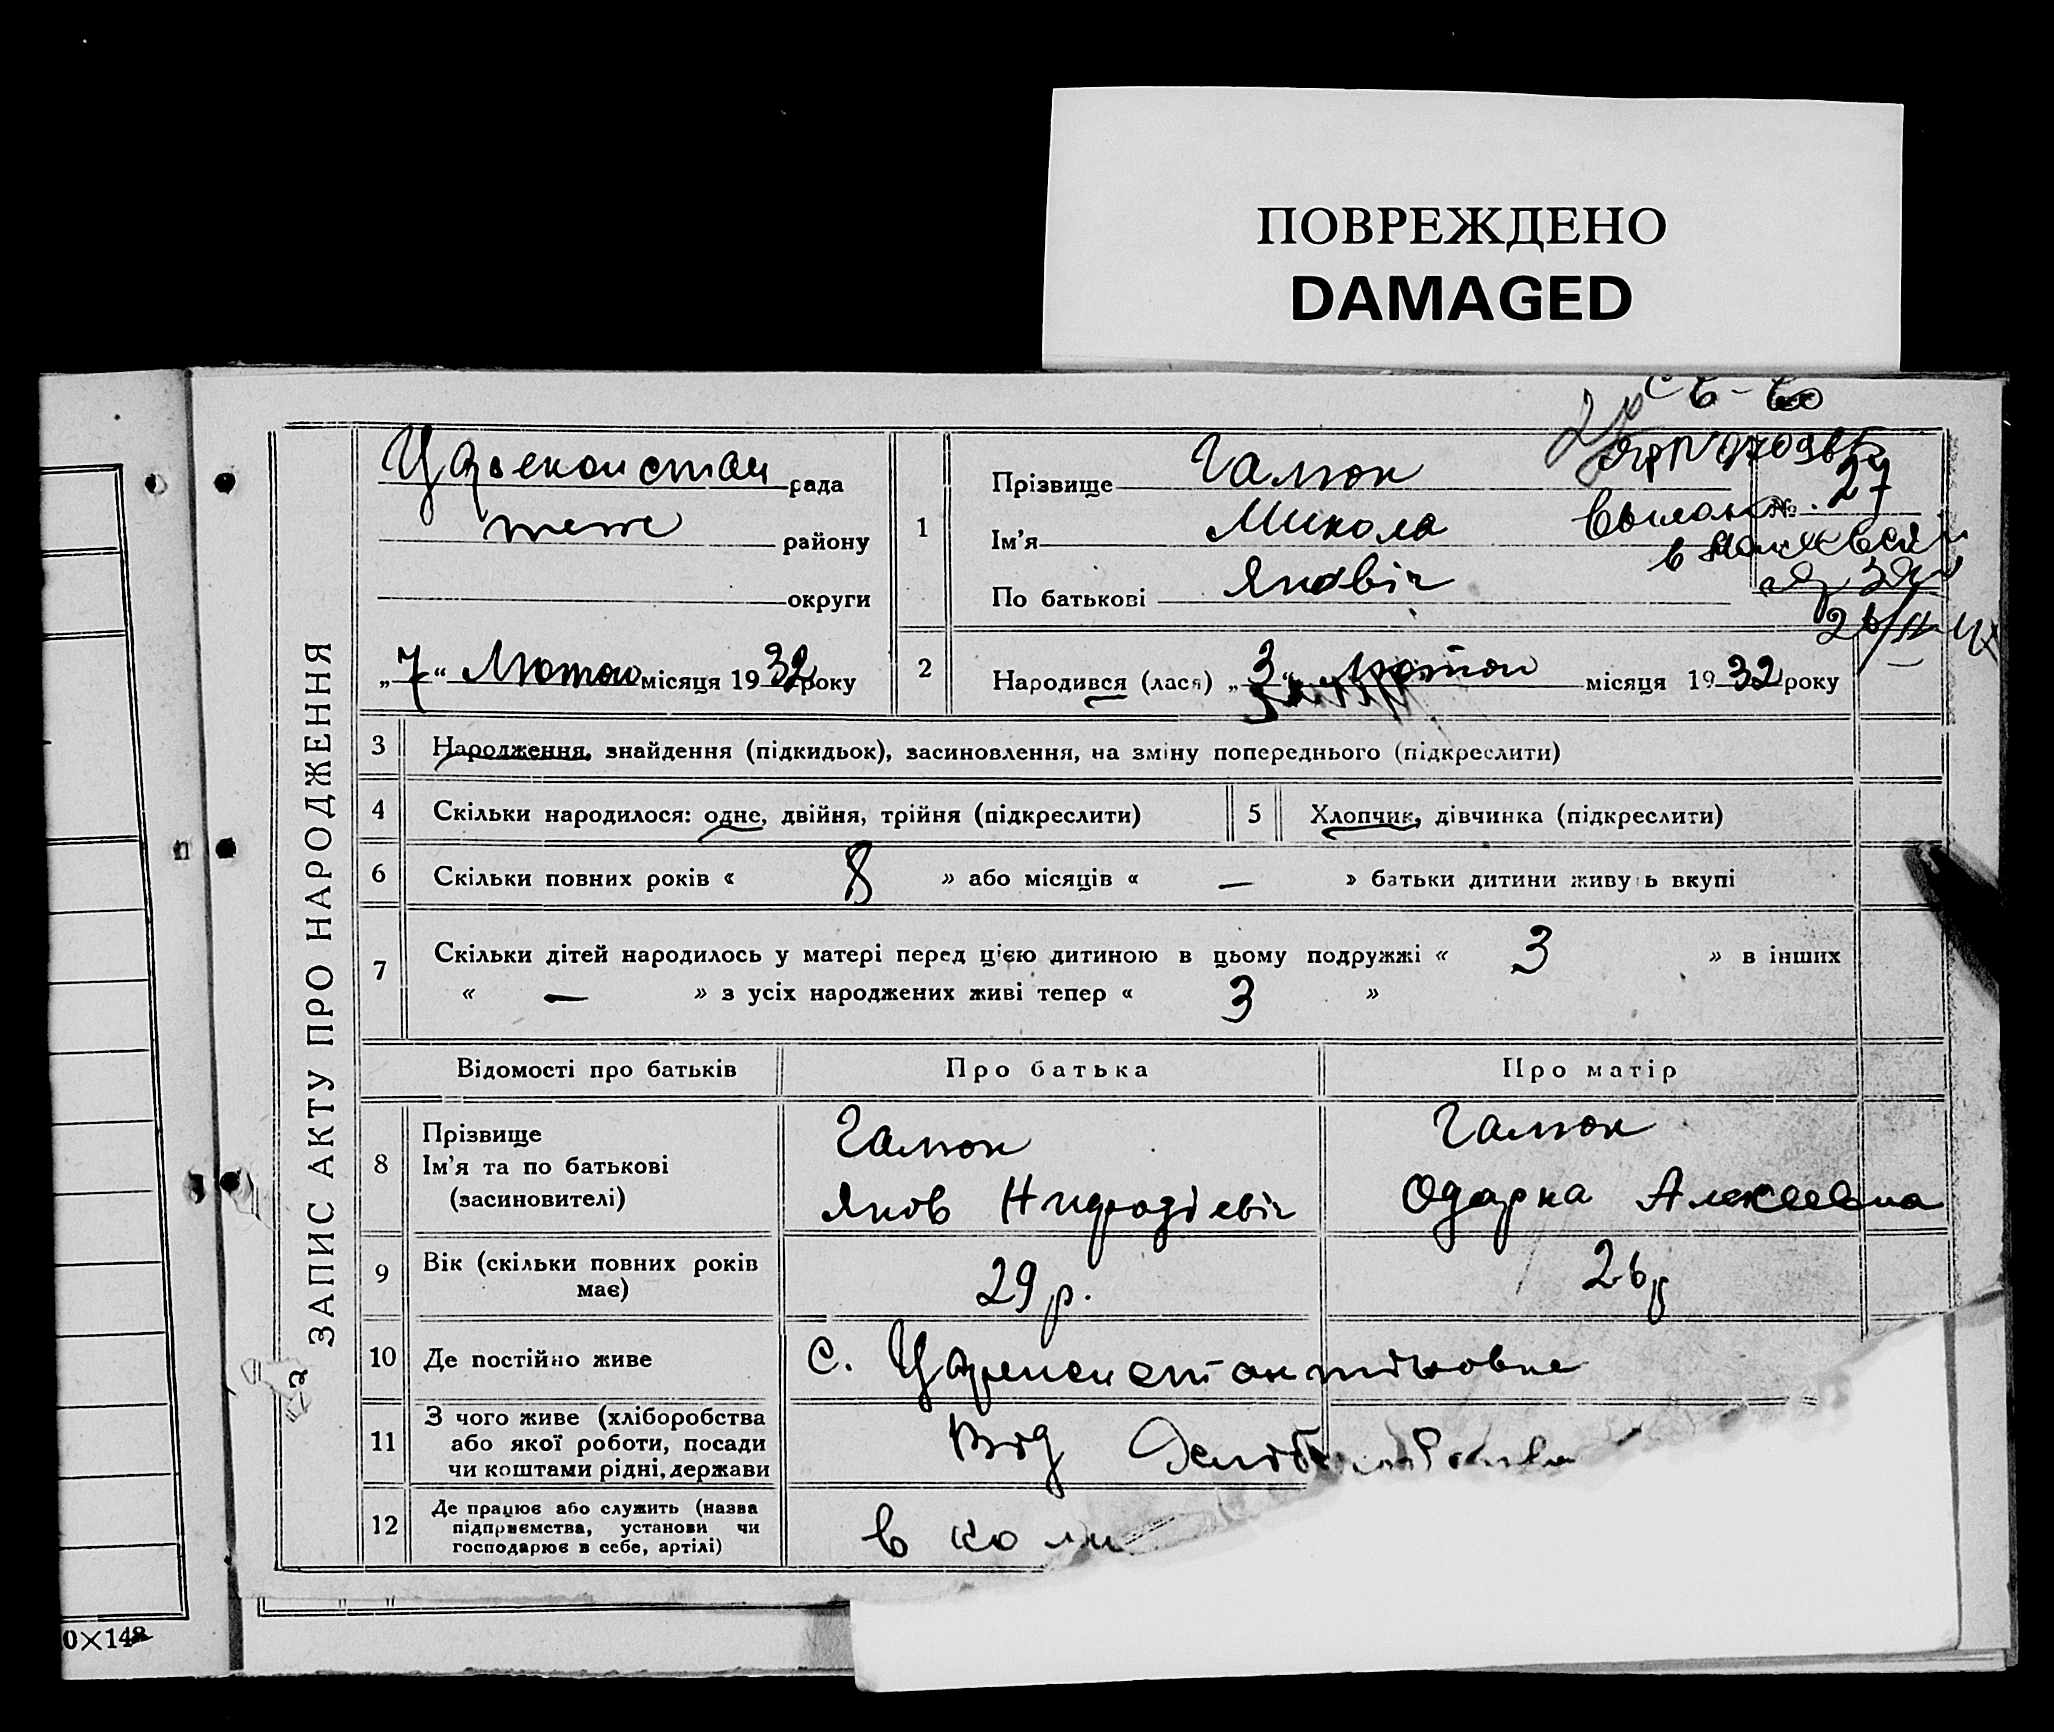 ПОВРЕЖДЕНО
DAMAGED
ЗАПИС АКТУ ПРО НАРОДЖЕННЯ
рада
теж району
округи
„7“ Лютого місяця 1932 року
1
Прізвище Галюк
Ім'я Микола
По батькові Яковіч
№ 27
2
Народився (лася) „3“ лютого місяця 1932 року
3 Народження, знайдення (підкидьок), засиновлення, на зміну попереднього (підкреслити)
4 Скільки народилося: одне, двійня, трійня (підкреслити)
5 Хлопчик, дівчинка (підкреслити)
6 Скільки повних років « 8 » або місяців « — » батьки дитини живуть вкупі
7 Скільки дітей народилось у матері перед цією дитиною в цьому подружжі « 3 » в інших
« — » з усіх народжених живі тепер « 3 »
Відомості про батьків Про батька Про матір
8 Прізвище
Ім'я та по батькові
(засиновителі)
Галюк
Яков
Галюк
Одарка Алексеевна
9 Вік (скільки повних років
має)
29 р.
26 р
10 Де постійно живе
с.
11 З чого живе (хліборобства
або якої роботи, посади
чи коштами рідні, держави
Від
12 Де працює або служить (назва
підприємства, установи чи
господарює в себе, артілі)
в кол
0×148